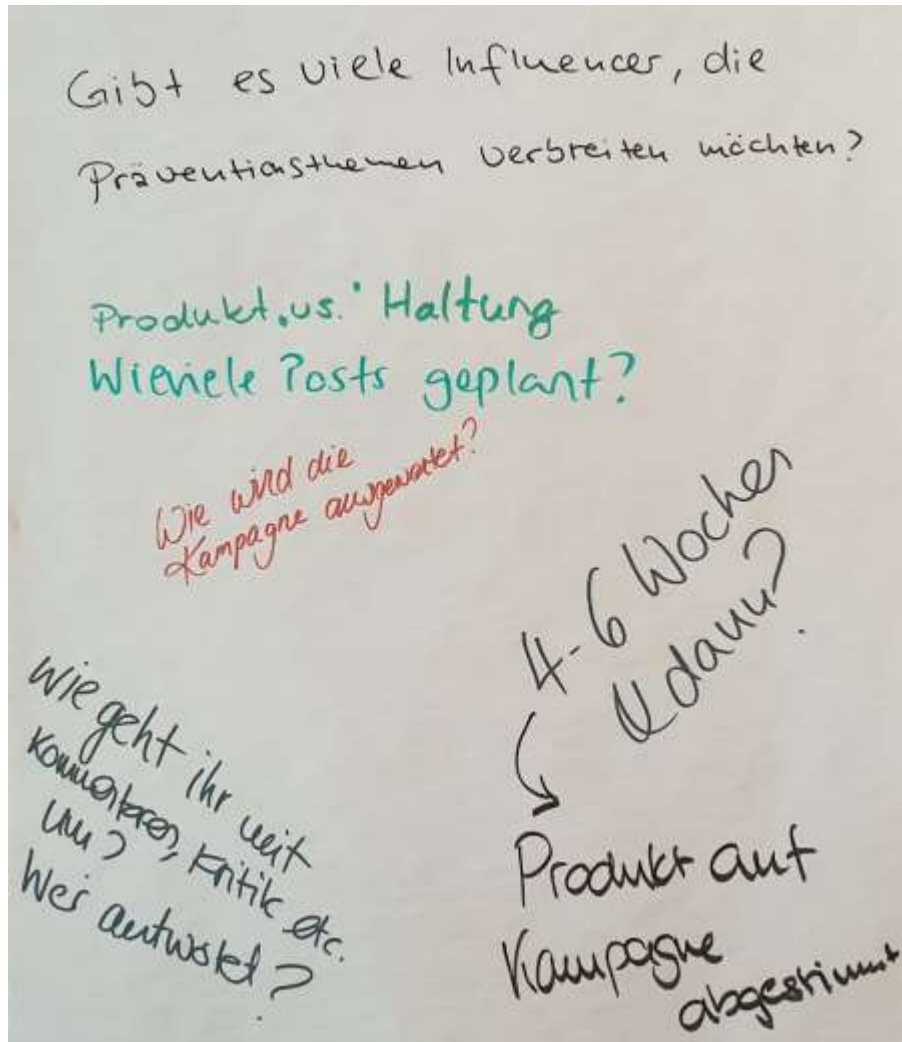 Gibt es viele Influencer, die
Präventionsthemen verbreiten möchten?
Produkt.vs. Haltung
Wieviele Posts geplant?
Wie wird die
Kampagne ausgewertet?
4-6 Wochen
& dann?
Produkt auf
Kampagne
abgestimmt
Wie geht ihr mit
Kommentaren, Kritik etc.
um?
Wer antwortet?